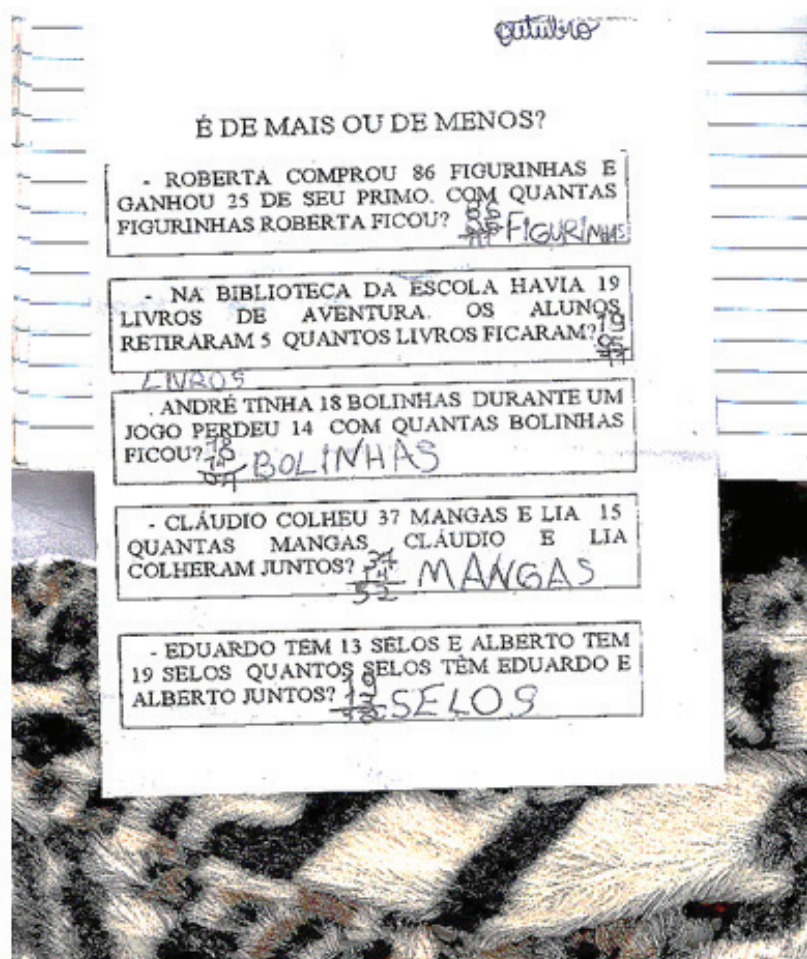 outubro
É DE MAIS OU DE MENOS?
- ROBERTA COMPROU 86 FIGURINHAS E
GANHOU 25 DE SEU PRIMO. COM QUANTAS
FIGURINHAS ROBERTA FICOU?
FIGURINHAS
- NA BIBLIOTECA DA ESCOLA HAVIA 19
LIVROS DE AVENTURA. OS ALUNOS
RETIRARAM 5 QUANTOS LIVROS FICARAM? 19
LIVROS
. ANDRÉ TINHA 18 BOLINHAS DURANTE UM
JOGO PERDEU 14 COM QUANTAS BOLINHAS
FICOU?
BOLINHAS
- CLÁUDIO COLHEU 37 MANGAS E LIA 15
QUANTAS MANGAS CLÁUDIO E LIA
COLHERAM JUNTOS?
52 MANGAS
- EDUARDO TEM 13 SELOS E ALBERTO TEM
19 SELOS QUANTOS SELOS TÊM EDUARDO E
ALBERTO JUNTOS?
SELOS